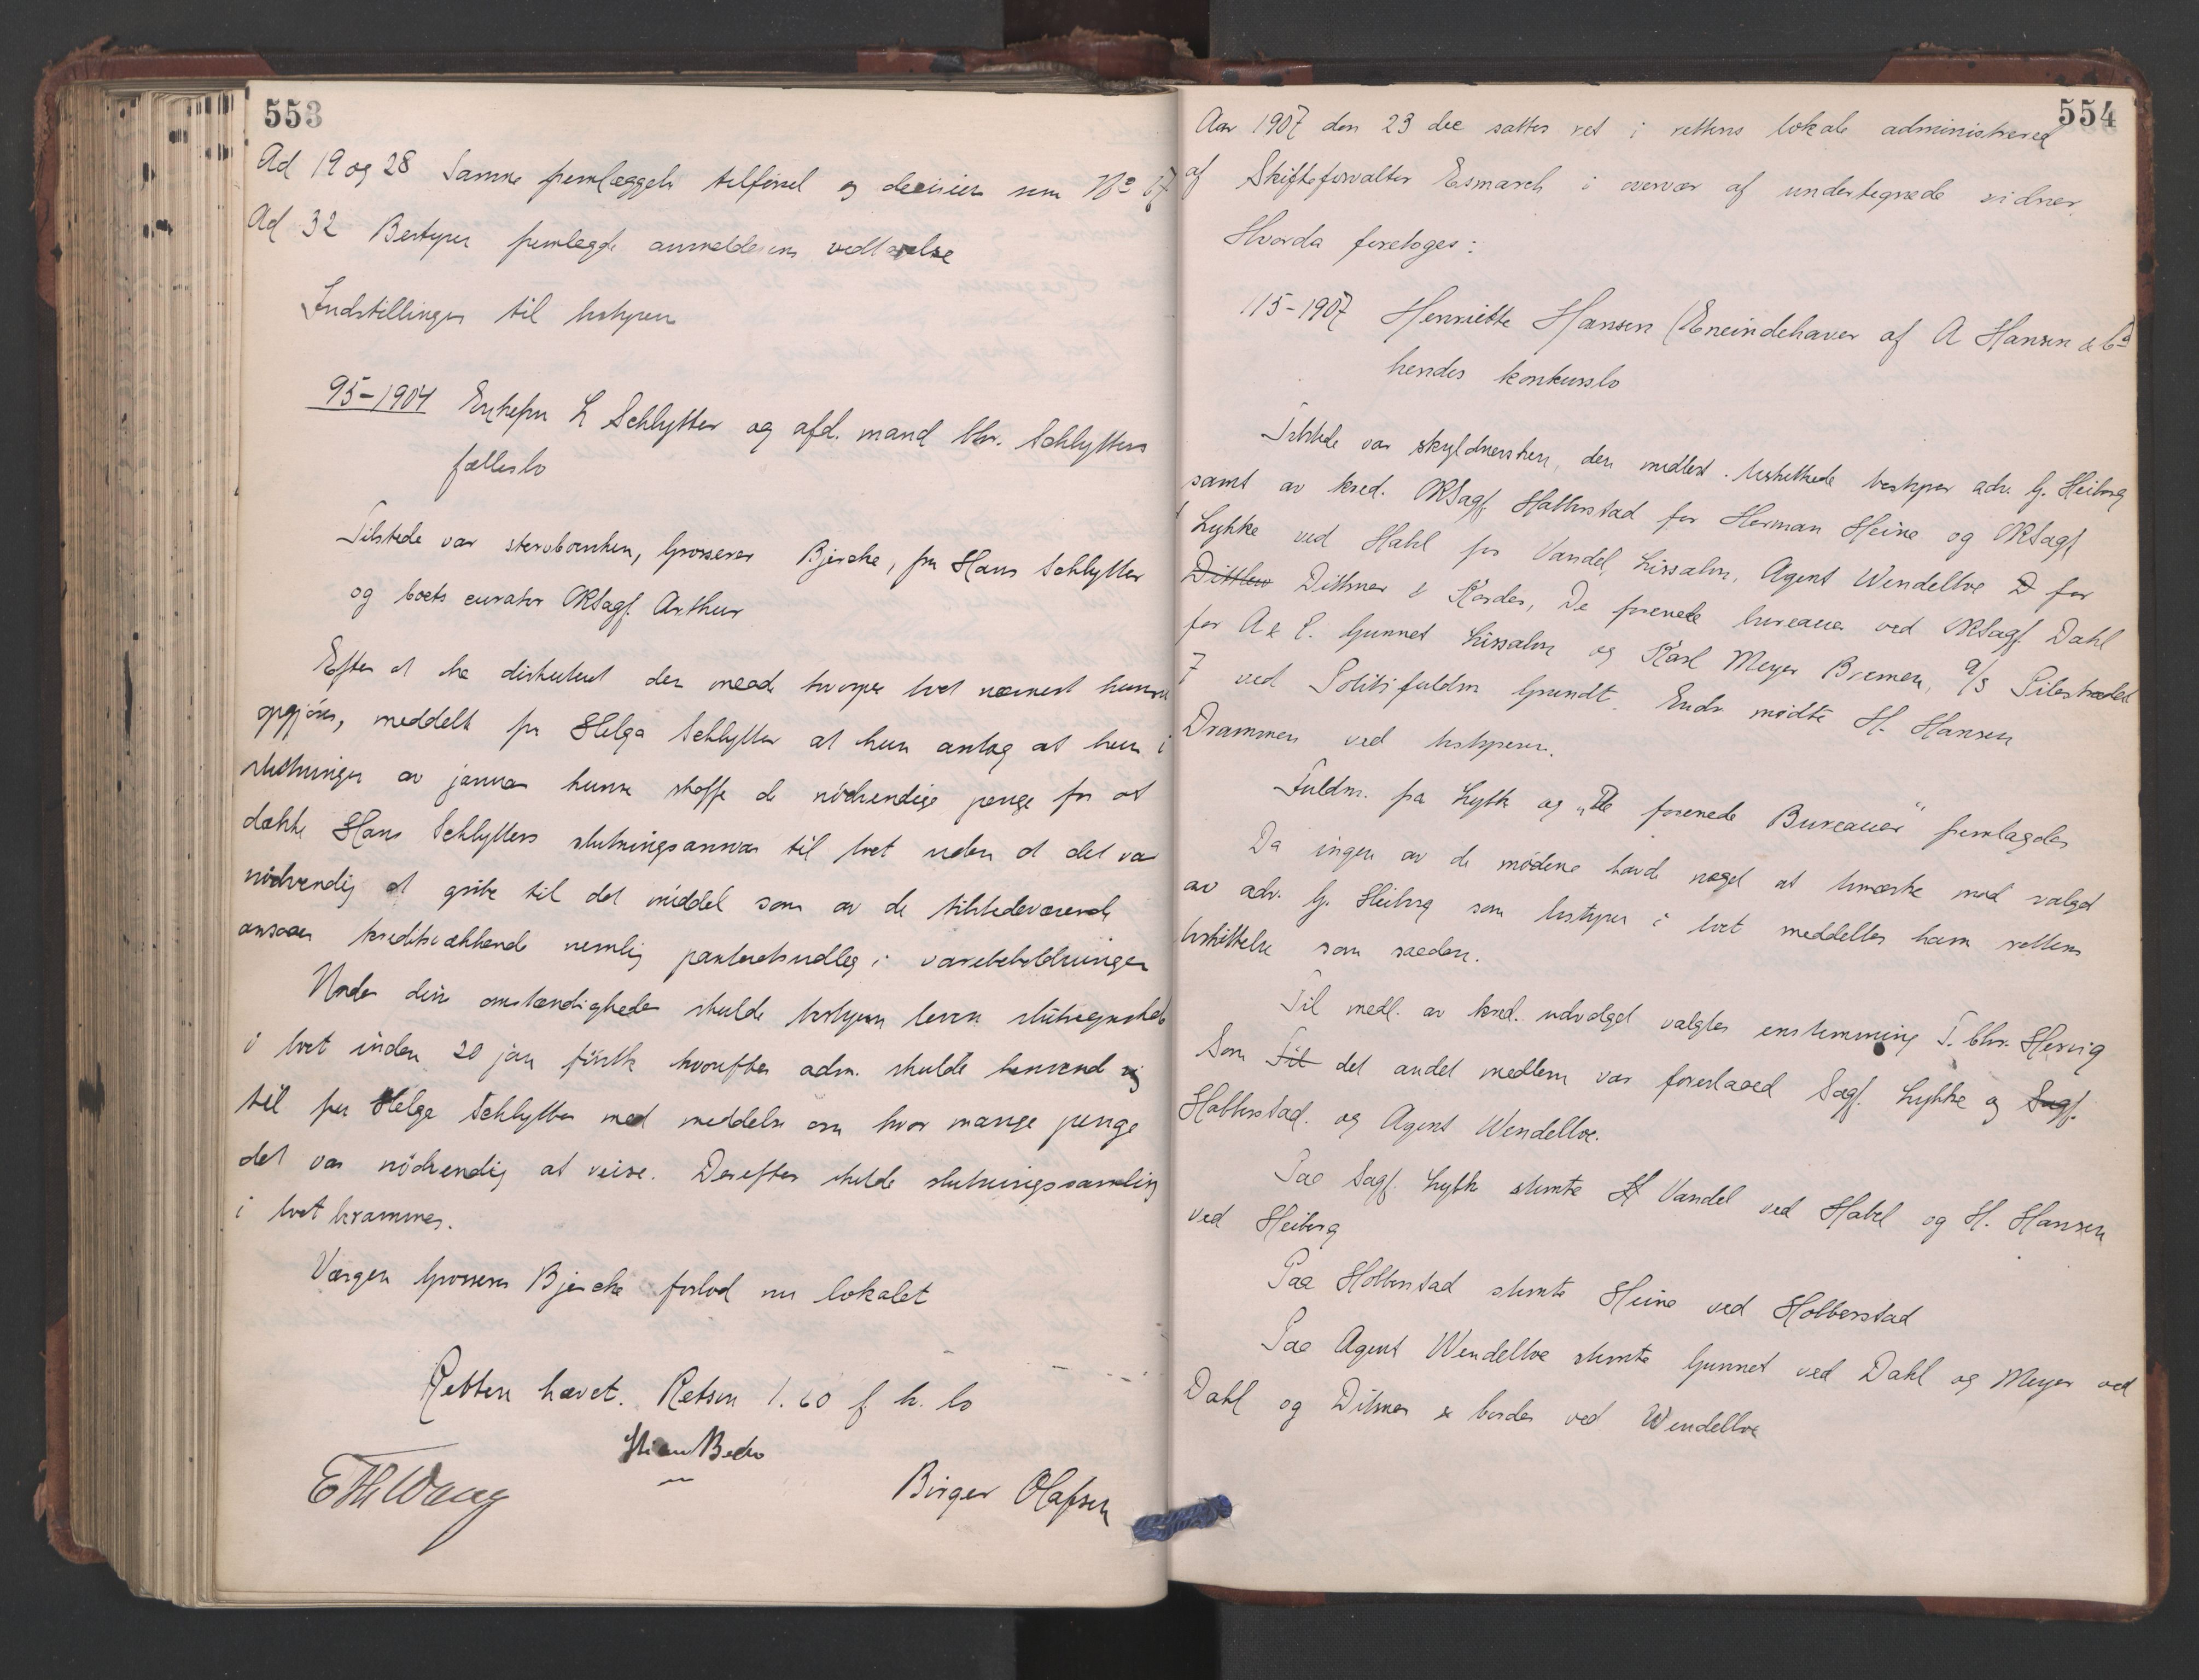 553
Ad 19 og 28 Samme fremlæggels tilførsel og decision som No 67
Ad 32 Bestyren fremlagde anmelderens vedtagelse
Indstillingen til bestyren
95-1904 Enkefru L Schlytter og afd. mand Chr. Schlytters
fællesbo
Tilstede var stervboenken, Grosserer Bjercke, fru Hans Schlytter
og boets curator ORSagf. Arthur
Efter at ha diskuteret den maade hvorpaa boet nærmest kunne
opgjøres, meddelte fru Helga Schlytter at hun antog at hun i
slutningen av januar kunne skaffe de nødvendige penge for at
dække Hans Schlytters slutningsansvar til boet uden at det var
nødvendig at gribe til det middel som av de tilstedeværende
ansaaes kreditsvækkende nemlig panteretsudlæg i varebeholdningen
Under disse omstændigheder skulde bestyren levere slutregnskab
i boet inden 20 jan førstk hvorefter adm. skulde henvende sig
til fru Helga Schlytter med meddelse om hvor mange penge
det var nødvendig at reise. Derefter skulde slutningssamling
i boet berammes.
Værgen Grosserer Bjercke forlod nu lokalet
Retten hævet. Retsen 1.60 f k. bo
Birger Olafsen
554
Aar 1907 den 23 dec sattes ret i rettens lokale administreret
af Skifteforvalter Esmarch i overvær af undertegnede vidner.
Hvorda foretoges:
115-1907 Henriette Hansen (Eneindehaver af A Hansen & Co
hendes konkursbo
Tilstede var skyldnersken, den midlert. beskikkede bestyrer adv. G. Heiberg
samt av kred. ORSagf Halberstad for Herman Heine og ORSagf
Lykke ved Hahl for Vandel, Lissabon, Agent Wendelboe D for
Dittlev Dithmer & Kordes, De forenede bureauer ved ORSagf. Dahl
for A & C. Gunnet Lissabon og Karl Meyer Bremen, A/S Pilestrædet
7 ved Politifuldm Grundt. Endv. mødte H. Hansen
Drammen ved bestyreren.
Fuldm. fra Lykke og "De forenede Bureauer" fremlagdes
Da ingen av de mødende havde noget at bemærke mod valget
av adv. G. Heiberg som bestyrer i boet meddeltes ham rettens
beskikkelse som saadan.
Til medl. av kred. udvalget valgtes enstemming T. Chr. Hervig
Som Til det andet medlem var foreslaaed Sagf. Lykke og Sagf.
Halberstad. og Agent Wendelboe.
Paa Sagf. Lykke stemte H Vandel ved Hahl og H. Hansen
ved Heiberg
Paa Halberstad stemte Heine ved Halberstad
Paa Agent Wendelboe stemte Gunnet ved Dahl og Meyer ved
Dahl og Ditmer & Cordes ved Wendelboe